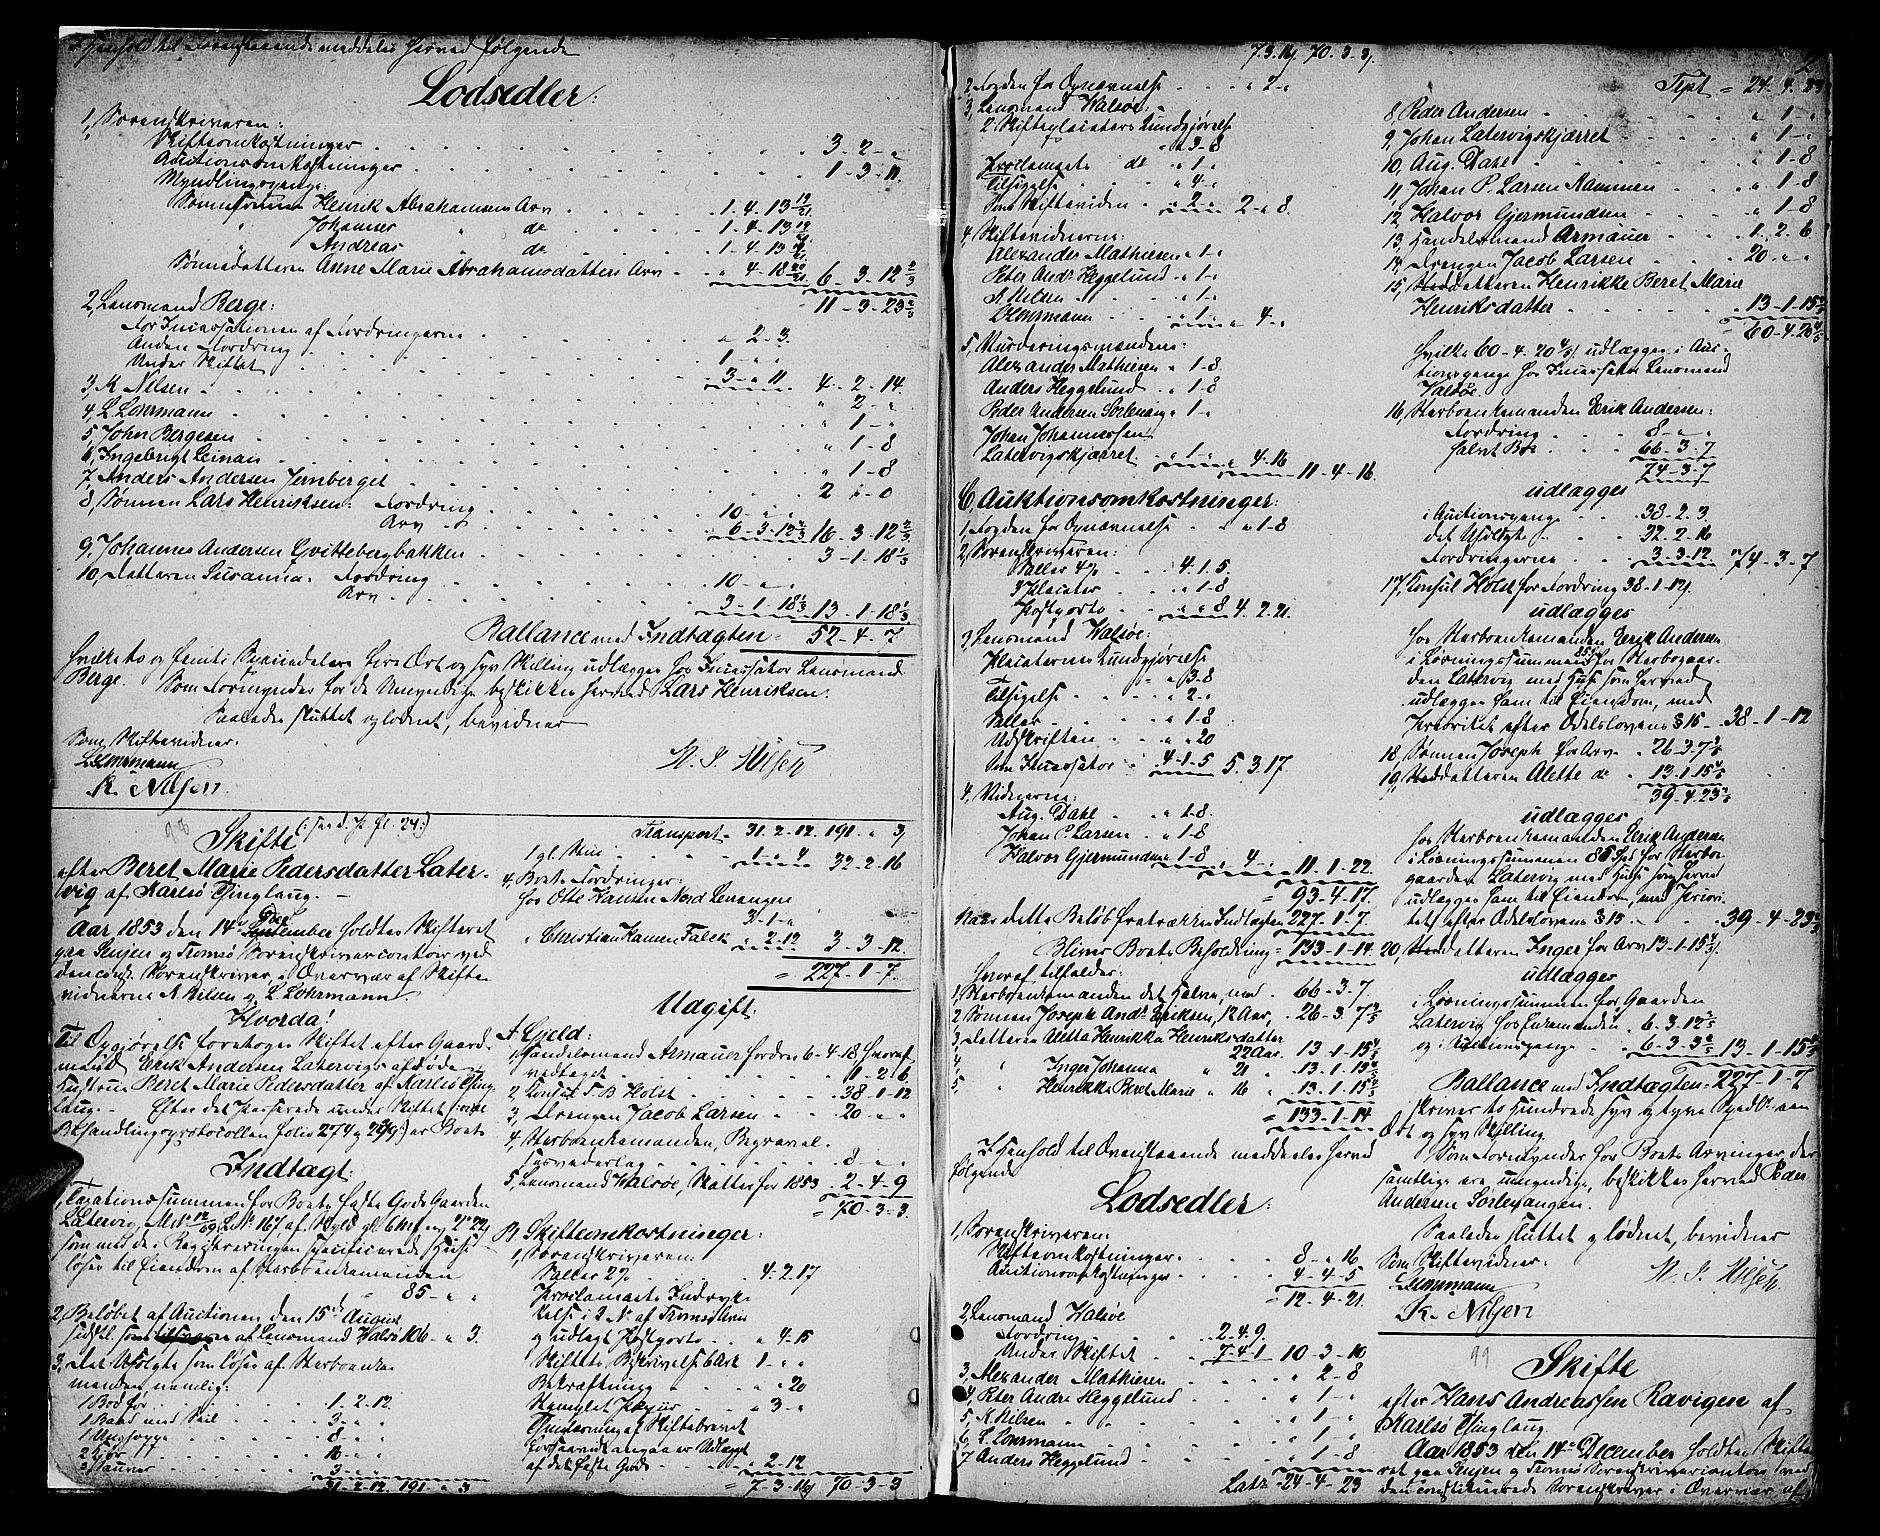 I Henhold til Foranstaaende meddeles herved følgende
Lodsedler:
1, Sorenskriveren:
Skifteomkostninger 3-2-"
Auctionsomkostninger 1-3-11.
Myndlingspenge:
Sønnesønnen Henrik Abrahamsens Arv 1-4-13 19/21
" Johannes " do 1-4-13 19/21
" Andreas " do 1-4-13 19/21
Sønnedatteren Anne Marie Abrahamsdatters Arv " 4-18 20/21 6-3-12 2/3
11-3-23 2/3
2, Lensmand Berge:
For Incassationen af Fordringerne " 2-3.
Anden Fordring 1-"-"
Under Skiftet 3-"-11 4-2-14.
3, K Nilsen " 2-"
4, L Lohrmann " 1-"
5, John Bergesen " 1-8
6, Ingebrigt Leinan " 1-8
7, Anders Andersen Jernberget 2
8, Sønnen Lars Henriksen: Fordring 10-"-"
Arv 6-3-12 2/3 16-3-12 2/3
9, Johannes Andersen Qvittebergbakken 3-1-18 1/3
10, Datteren Susanna: Fordring 10-"-"
Arv 3-1-18 1/3 13-1-18 1/3
Ballance med Indtægten 52-4-7
hvilke to og femti Speciedaler fire Ort og syv Skilling udlægges hos Incassator Lensmand
Berge. Som Formynder for de Umyndige beskikkes herved Lars Henriksen.
Saaledes sluttet og lodnet, bevidner
Som Skiftevidner:
L Lohrmann
K. Nilsen
98
Skifte
efter Beret Marie Pedersdatter Later-
vig af Karlsø Thinglaug.
Aar 1853 den 14de holdtes Skifteret
paa Senjen og Tromsø Sorenskrivercontoir ved
den const. Sorenskriver i Overvær af Skifte-
vidnerne K Nilsen og L. Lohrmann
Hvorda!
Til Opgjørelse foretoges Skiftet efter Gaard-
mand Erik Andersen Latervigs afdøde
Hustrue Beret Marie Pedersdatter af Karlsø Thing-
laug. Efter det Passerede under Skiftet
Behandlingsprotocollen folio 274 og 299 er Boets
Indtægt:
1, Taxationssummen for Boets faste Gods Gaarden
Latervig,
som med de i Registreringen specificerede Huse
løses til Eiendom af Sterboenkemanden
85-"-"
2, Beløbet af Auctionen den 15de August
af Lensmand Walsøe 106-"-3.
3, Det Usolgte som løses af Sterboenke-
manden nemlig:
1 Bodfør 1-2-12.
1 Baad med Seil 3-"-"
1 Unghoppe 8-"-"
2 Kjør 16-"-"
3 Sauver 3-"-"
31-2-12 191-"-3
Transport 31-2-12. 191-"-3,
1 gl. 1-"-4 32-2-16
4, Boets Fordringer:
hos Otte Hansen Nord Lenangen
3-1-"
" Christian Hansen Falck " 2-12 3-3-12.
= 227-1-7.
Udgift:
A Gjeld:
1, Handelsmand Armauer fordrer 6-4-18 hvoraf
vedtaget 1-2-6.
2, Consul J. B Holst 38-1-12
3, Drengen Jacob Larsen 20-"-"
4, Sterboenkemanden, Begravel-
sesvederlag 8-"-"
5, Lensmand Walsøe, Skatter for 1853 2-4-9
= 70-3-3.
B, Skifteomkostninger:
1, Sorenskriveren:
Saller 2% 4-2-17
Proclamaets Indryk-
kelse i 3 N af Tromsø Avis
og udlagt Postporto " 4-15
Skiftets Beskrivelse 6 Ark 1-"-"
Bekræftning " " 20
Stemplet Papiir " 3-"
Thinglæsning af Skiftebrevet
forsaavidt angaaer Udlægget
af det faste Gods " 2-12
= 7-3-16 70-3-3
7-3-16. 70-3-3.
2, Fogden for Opnævnelse " 2-"
3, Lensmand Walsøe:
2 Skifteplacaters Kundgjørelse
" 3-8
Proclamaets do " 1-"
Tilsigelse " 4-"
Som Skiftevidne " 2-" 2-"-8.
4, Skiftevidnerne:
Alexander Mathiesen " 1-"
Peter Andr. Heggelund " 1-"
K Nilsen " 1-"
L Lohrmann " 1-" " 4-"
5, Vurderingsmændene:
Alexander Mathiesen " 1-8
Anders Heggelund " 1-8
Peder Andersen Sorlenang " 1-"
Johan Johannessen
Latervigskjæret " 1-" " 4-16 11-4-16.
C, Auktionsomkostninger:
1, Fogden for Opnævnelse " 1-8
2, Sorenskriveren:
Saller 4% 4-1-5.
3 Placater " 1-8
Postporto " " 8 4-2-21.
3, Lensmand Walsøe:
Placaternes Kundgjørelse
" 3-8
Tilsigelse " 2-"
Saller " 1-8
Udskriften " " 20
Som Incassator 4-1-5 5-3-17.
4, Vidnerne:
Aug. Dahl " 1-8
Johan P. Larsen " 1-8
Halvor Gjermundsen " 1-8 " 4-" 11-1-22.
= 93-4-17.
Naar dette Beløb fratrækkes Indtægten 227-1-7.
Bliver Boets Beholdning = 133-1-14
Hvoraf tilfalder:
1, Sterboenkemanden det Halve, med 66-3-7.
2 Sønnen Joseph Andr. Eriksen, 12 Aar, 26-3-7 3/5
3, Datteren Aletta Henrikka Henriksdatter
22 Aar. 13-1-15 4/5
4, " Inger Johanna " 21 " 13-1-15 4/5
5, " Henrikke Beret Marie " 16 " 13-1-15 4/5
= 133-1-14
I Henhold til Ovenstaaende meddeles herved
følgende
Lodsedler:
1, Sorenskriveren:
Skifteomkostninger 8-"-16
Auctionsomkostninger 4-4-5
= 12-4-21.
2, Lensmand Walsøe
Fordring 2-4-9.
Under Skiftet 7-4-1 10-3-10
3, Alexander Mathiesen " 2-8
4, Peter Andr. Heggelund " 1-"
5, K Nilsen " 1-"
6 L. Lohrmann " 1-"
7 Anders Heggelund " 1-8
Latr. 24-4-23
Tspt = 24-4-23
8 Peder Andersen " 1-"
9, Johan Latervigskjæret " 1-"
10, Aug. Dahl " 1-8
11, Johan P. Larsen Hammen " 1-8
12, Halvor Gjermundsen " 1-8
13, Handelsmand Armauer 1-2-6
14, Drengen Jacob Larsen 20-"-"
15, Steddatteren Henrikke Beret Marie
Henriksdatter 13-1-15 4/5
60-4-20 4/5
hvilke 60-4-20 4/5 udlægges i Auc-
tionspenge hos Incassator Lensmand
Walsøe.
16, Sterboenkemanden Erik Andersen:
Fordring 8-"-"
halvt Boe 66-3-7
74-3-7
udlægges
i Auctionspenge 38-2-3.
det Usolgte 32-2-16
Fordringerne 3-3-12 74-3-7
17, Consul Holst for Fordring 38-1-12
udlægges
hos Sterboenkemanden Erik Andersen
i Løsningssummen 85 for Sterbogaar-
den Latervig med Huse som herved
udlægges ham til Eiendom, med
Prioritet efter Odelslovens § 15 38-1-12
18, Sønnen Joseph for Arv " 26-3-7 3/5
19, Steddatteren Alette do " 13-1-15 4/5
39-4-23 2/5
udlægges
hos Sterboenkemanden Erik Andersen
i Løsningssummen 85 Spd for Sterbo-
gaarden Latervig med Huse som herved
udlægges ham til Eiendom, med Priori-
tet efter Odelslovens § 15 39-4-23 2/5
20, Steddatteren Inger for Arv 13-1-15 4/5.
udlægges
i Løsningssummen for Gaarden
Latervig hos Enkemanden 6-3-12 3/5
og i Auctionspenge 6-3-3 1/5 13-1-15 4/5
Ballance med Indtægten 227-1-7
skriver to hundrede syv og tyve Speds een
Ort og syv Skilling
Som Formynder for Boets Arvinger der
samtlige ere umyndige, beskikkes herved Peder
Andersen Sorlenangen.
Saaledes sluttet og lodnet, bevidner
Som Skiftevidner:
L Lohrmann
K. Nilsen
99
Skifte
efter Hans Andreassen Ravigen af
Karlsø Thinglaug.
Aar 1853 den 14de December holdtes Skifte-
ret paa Senjen og Tromsø Sorenskrivercontoir ved
den constituerede Sorenskriver i Overvær af